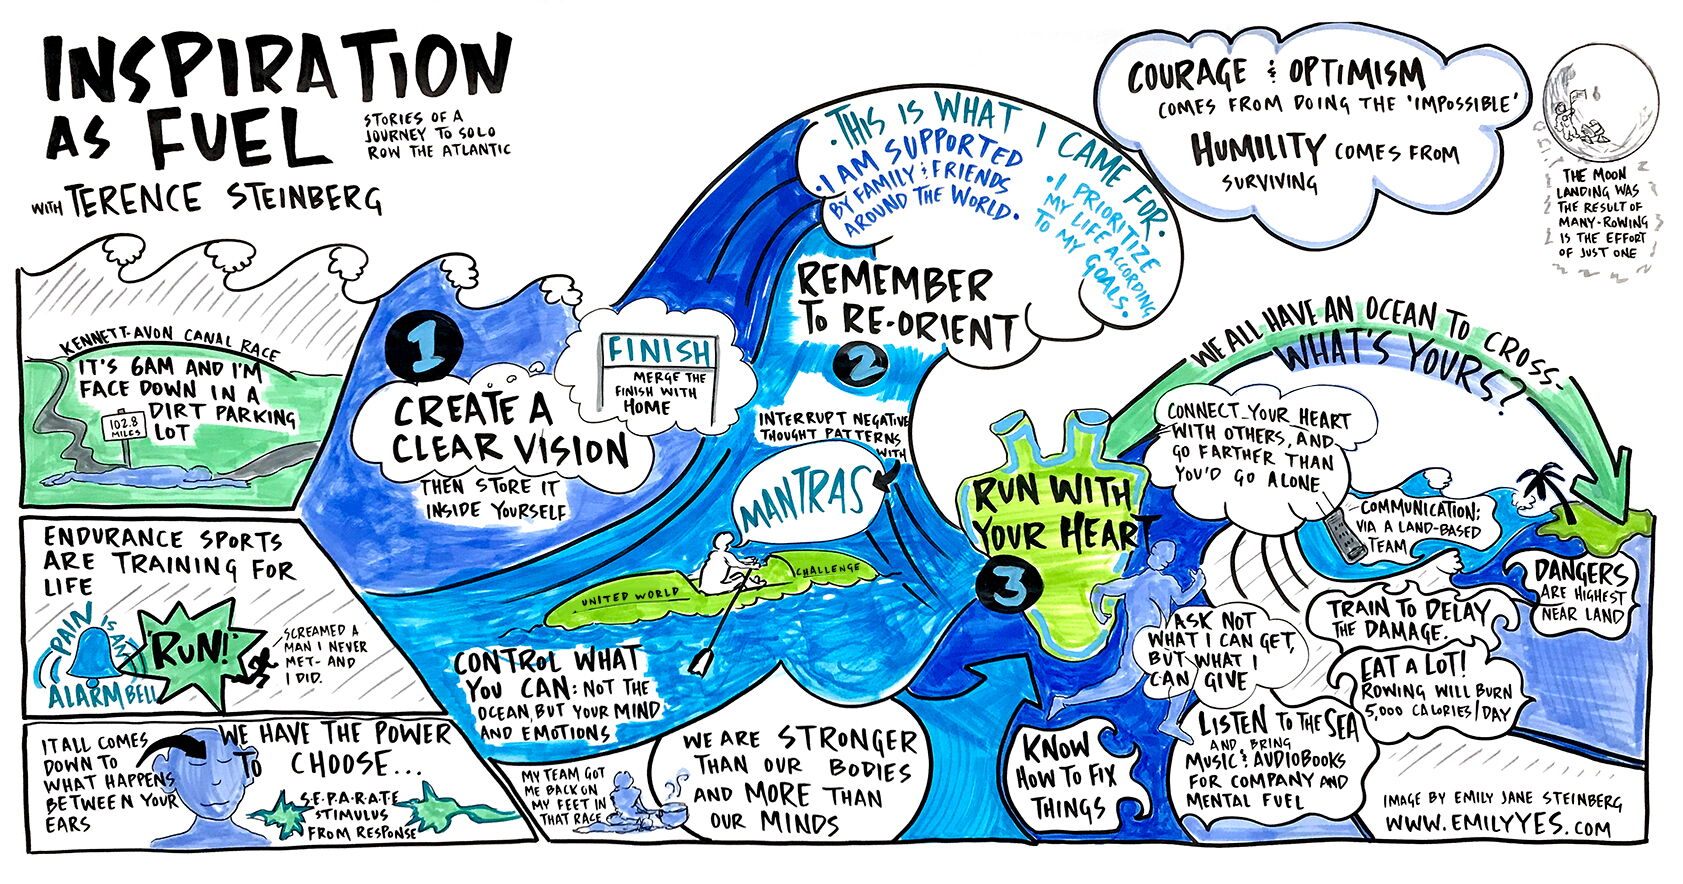 INSPIRATION
AS FUEL
STORIES OF A
JOURNEY TO SOLO
ROW THE ATLANTIC
WITH TERENCE STEINBERG
KENNETT-AVON CANAL RACE
IT'S 6AM AND I'M
FACE DOWN IN A
DIRT PARKING
LOT
102.8
MILES
ENDURANCE SPORTS
ARE TRAINING FOR
LIFE
PAIN IS AN
ALARM BELL
"RUN!"
SCREAMED A
MAN I NEVER
MET- AND
I DID.
IT ALL COMES
DOWN TO
WHAT HAPPENS
BETWEEN YOUR
EARS
WE HAVE THE POWER
TO CHOOSE...
S·E·P·A·R·A·T·E
STIMULUS
FROM RESPONSE
1
CREATE A
CLEAR VISION
THEN STORE IT
INSIDE YOURSELF
FINISH
MERGE THE
FINISH WITH
HOME
·THIS IS WHAT I CAME FOR·
·I AM SUPPORTED
BY FAMILY & FRIENDS
AROUND THE WORLD·
·I PRIORITIZE
MY LIFE ACCORDING
TO MY GOALS.
REMEMBER
TO RE-ORIENT
2
INTERRUPT NEGATIVE
THOUGHT PATTERNS
WITH
MANTRAS
UNITED WORLD
CHALLENGE
CONTROL WHAT
YOU CAN: NOT THE
OCEAN, BUT YOUR MIND
AND EMOTIONS
MY TEAM GOT
ME BACK ON
MY FEET IN
THAT RACE
WE ARE STRONGER
THAN OUR BODIES
AND MORE THAN
OUR MINDS
COURAGE & OPTIMISM
COMES FROM DOING THE 'IMPOSSIBLE'
HUMILITY COMES FROM
SURVIVING
THE MOON
LANDING WAS
THE RESULT OF
MANY-ROWING
IS THE EFFORT
OF JUST ONE
WE ALL HAVE AN OCEAN TO CROSS-
WHAT'S YOURS?
RUN WITH
YOUR HEART
3
CONNECT YOUR HEART
WITH OTHERS, AND
GO FARTHER THAN
YOU'D GO ALONE
COMMUNICATION:
VIA A LAND-BASED
TEAM
DANGERS
ARE HIGHEST
NEAR LAND
TRAIN TO DELAY
THE DAMAGE.
EAT A LOT!
ROWING WILL BURN
5,000 CALORIES/DAY
ASK NOT
WHAT I CAN GET,
BUT WHAT I
CAN GIVE
KNOW
HOW TO FIX
THINGS
LISTEN TO THE SEA
AND BRING
MUSIC & AUDIOBOOKS
FOR COMPANY AND
MENTAL FUEL
IMAGE BY EMILY JANE STEINBERG
WWW.EMILYYES.COM